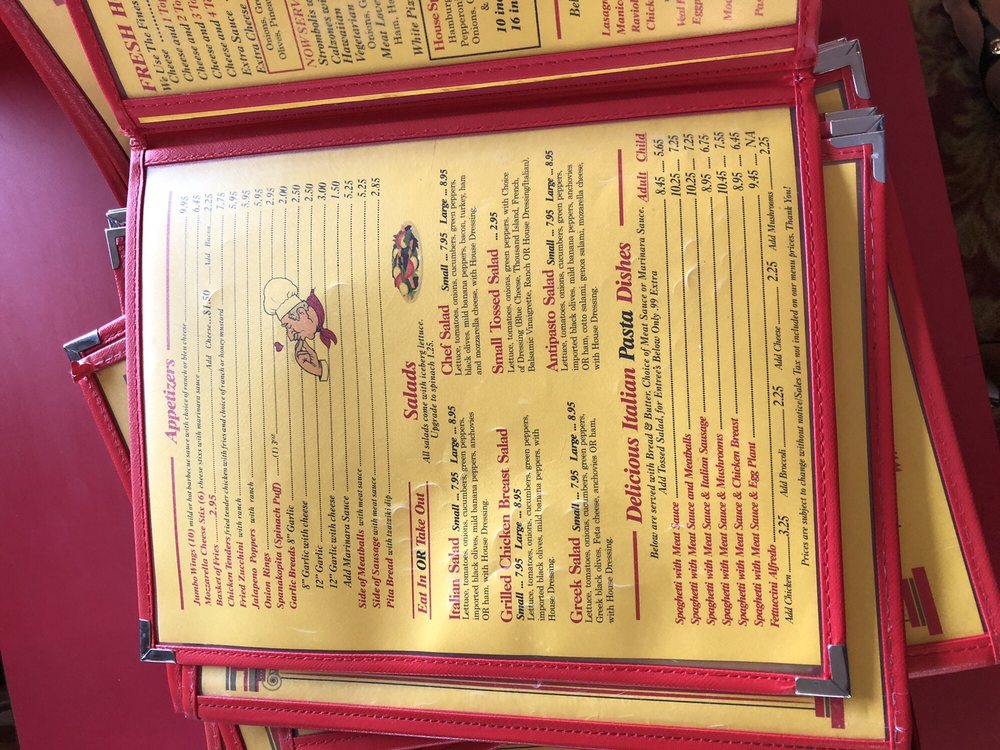 FRESH H
We Use The Fines
Cheese and 1 To
Cheese and 2 T
Cheese and 3
Cheese and
Cheese and
Extra Sauce
Extra Cheese
NOW SERV
Strombolis
Calzones
Hawaiian
Vegetarian
Onions, G
Meat Lov
Ham,
White Piz
House S
Hamburg
Pepperon
Onions,
10 in
16 in
Lasagn
Manic
Ravio
Chick
Veal
Eggp
Appetizers
Jumbo Wings (10) mild or hot barbecue sauce with choice of ranch or bleu cheese 9.95
Mozzarella Cheese Stix (6) cheese stixs with marinara sauce 6.45
Basket of Fries ... 2.95 Add Cheese..$1.50 Add Bacon.. 2.25
Chicken Tenders fried tender chicken with fries and choice of ranch or honey mustard 7.75
Fried Zucchini with ranch 5.95
Jalapeno Poppers with ranch 5.95
Onion Rings 5.95
Spanakopita (Spinach Puff) (1) 3rd 2.95
Garlic Breads 8" Garlic 2.00
8" Garlic with cheese 2.50
12" Garlic 2.50
12" Garlic with cheese 3.00
Add Marinara Sauce 1.50
Side of Meatballs with meat sauce 5.25
Side of Sausage with meat sauce 5.25
Pita Bread with tzatziki dip 2.85
Eat In OR Take Out
Salads
All salads come with iceberg lettuce.
Upgrade to spinach 1.25.
Italian Salad Small ... 7.95 Large ... 8.95
Lettuce, tomatoes, onions, cucumbers, green peppers,
imported black olives, mild banana peppers, anchovies
OR ham, with House Dressing.
Grilled Chicken Breast Salad
Small ... 7.95 Large ... 8.95
Lettuce, tomatoes, onions, cucumbers, green peppers,
imported black olives, mild banana peppers, with
House Dressing.
Greek Salad Small ... 7.95 Large ... 8.95
Lettuce, tomatoes, onions, cucumbers, green peppers,
Greek black olives, Feta cheese, anchovies OR ham,
with House Dressing.
Chef Salad Small ... 7.95 Large ... 8.95
Lettuce, tomatoes, onions, cucumbers, green peppers,
black olives, mild banana peppers, bacon, turkey, ham
and mozzarella cheese, with House Dressing.
Small Tossed Salad ... 2.95
Lettuce, tomatoes, onions, green peppers, with Choice
of Dressing (Blue Cheese, Thousand Island, French,
Balsamic Vinaigrette, Ranch OR House Dressing/Italian).
Antipasto Salad Small ... 7.95 Large ... 8.95
Lettuce, tomatoes, onions, cucumbers, green peppers,
imported black olives, mild banana peppers, anchovies
OR ham, cotto salami, genoa salami, mozzarella cheese,
with House Dressing.
Delicious Italian Pasta Dishes
Below are served with Bread & Butter, Choice of Meat Sauce or Marinara Sauce.
Add Tossed Salad, for Entree's Below Only .99 Extra
Adult Child
Spaghetti with Meat Sauce 8.45 5.65
Spaghetti with Meat Sauce and Meatballs 10.25 7.25
Spaghetti with Meat Sauce & Italian Sausage 10.25 7.25
Spaghetti with Meat Sauce & Mushrooms 8.95 6.75
Spaghetti with Meat Sauce & Chicken Breast 10.45 7.55
Spaghetti with Meat Sauce & Egg Plant 8.95 6.45
Fettuccini Alfredo 9.45 NA
Add Chicken 3.25 Add Broccoli 2.25 Add Cheese 2.25 Add Mushrooms 2.25
Prices are subject to change without notice/Sales Tax not included on our menu prices. Thank You!